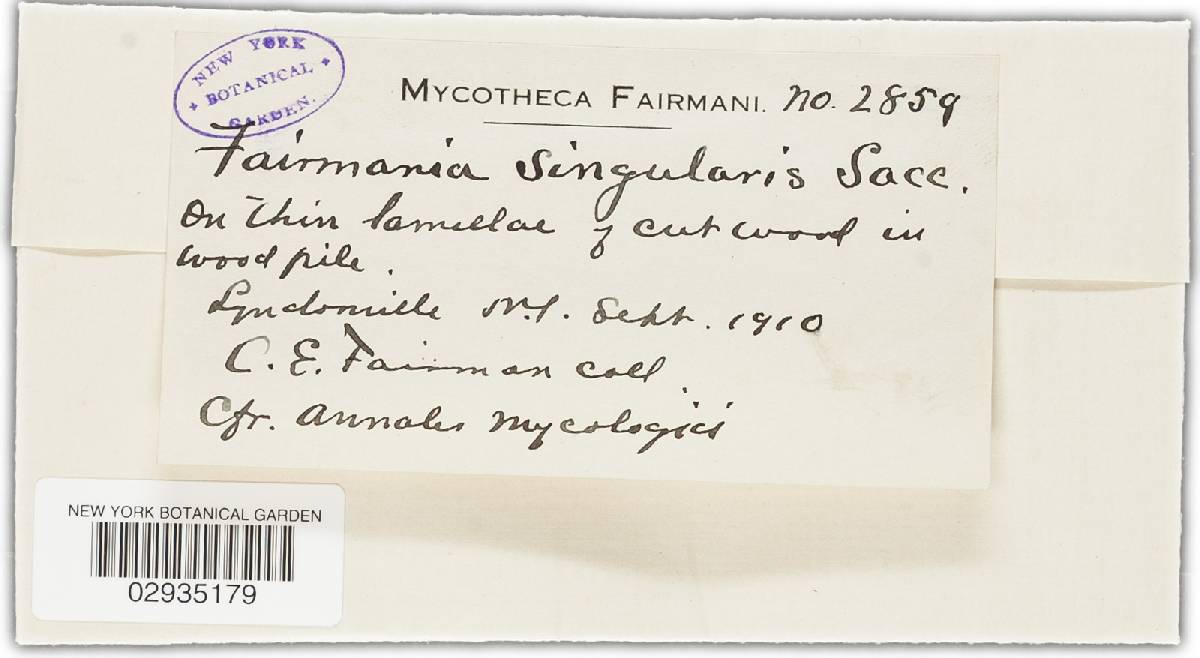 NEW YORK
BOTANICAL
GARDEN.
MYCOTHECA FAIRMANI. No. 2859
Fairmania singularis Sacc.
On thin lamellae of cut wood in
wood pile.
Lyndonville N.Y. Sept. 1910
C. E. Fairman coll.
Cfr. Annales Mycologici
NEW YORK BOTANICAL GARDEN
02935179